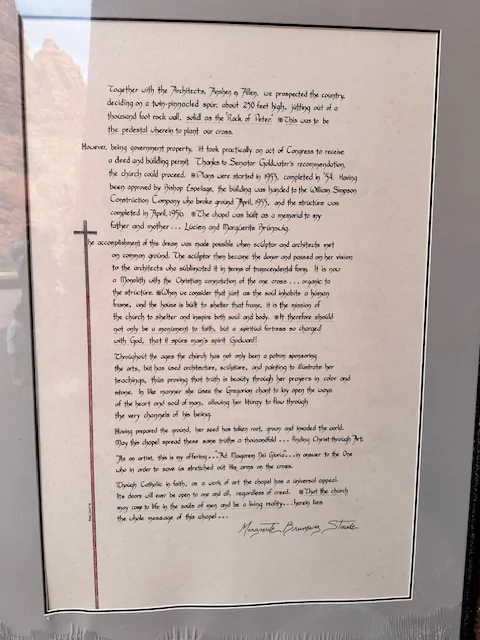 Together with the Architects, Anshen & Allen, we prospected the country,
deciding on a twin-pinnacled spur, about 250 feet high, jutting out of a
thousand foot rock wall, solid as the "Rock of Peter." This was to be
the pedestal wherein to plant our cross.
However, being government property, it took practically an act of Congress to receive
a deed and building permit. Thanks to Senator Goldwater's recommendation,
the church could proceed. Plans were started in 1953, completed in '54. Having
been approved by Bishop Espelage, the building was handed to the William Simpson
Construction Company who broke ground April, 1955, and the structure was
completed in April, 1956. The chapel was built as a memorial to my
father and mother... Lucien and Marguerite Brunswig.
The accomplishment of this dream was made possible when sculptor and architects met
on common ground. The sculptor then became the donor and passed on her vision
to the architects who sublimated it in terms of transcendental form. It is now
a Monolith with the Christian connotation of the one cross... organic to
the structure. When we consider that just as the soul inhabits a human
frame, and the house is built to shelter that frame, it is the mission of
the church to shelter and inspire both soul and body. It therefore should
not only be a monument to faith, but a spiritual fortress so charged
with God, that it spurs man's spirit Godward!
Throughout the ages the church has not only been a patron sponsoring
the arts, but has used architecture, sculpture, and painting to illustrate her
teachings, thus proving that truth is beauty through her prayers in color and
stone. In like manner she uses the Gregorian chant to lay open the ways
of the heart and soul of man, allowing her liturgy to flow through
the very channels of his being.
Having prepared the ground, her seed has taken root, grown and invaded the world.
May this chapel spread these same truths a thousandfold... finding Christ through Art.
"As an artist, this is my offering..." "Ad Magorem Dei Gloria"... in answer to the One
who in order to save us stretched out His arms on the cross.
Though Catholic in faith, as a work of art the chapel has a universal appeal.
Its doors will ever be open to one and all, regardless of creed. That the church
may come to life in the souls of men and be a living reality... herein lies
the whole message of this chapel...
Marguerite Brunswig Staude